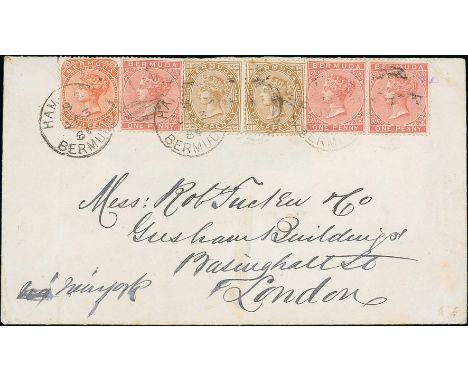 BERMUDA BERMUDA BERMUDA BERMUDA
ONE PENNY ONE PENNY ONE PENNY ONE PENNY
HAM
BERMUD
BERMUD
BERMU
Mess: Robt Tucker & Co
Gresham Buildings
Basinghall St
London
via New York